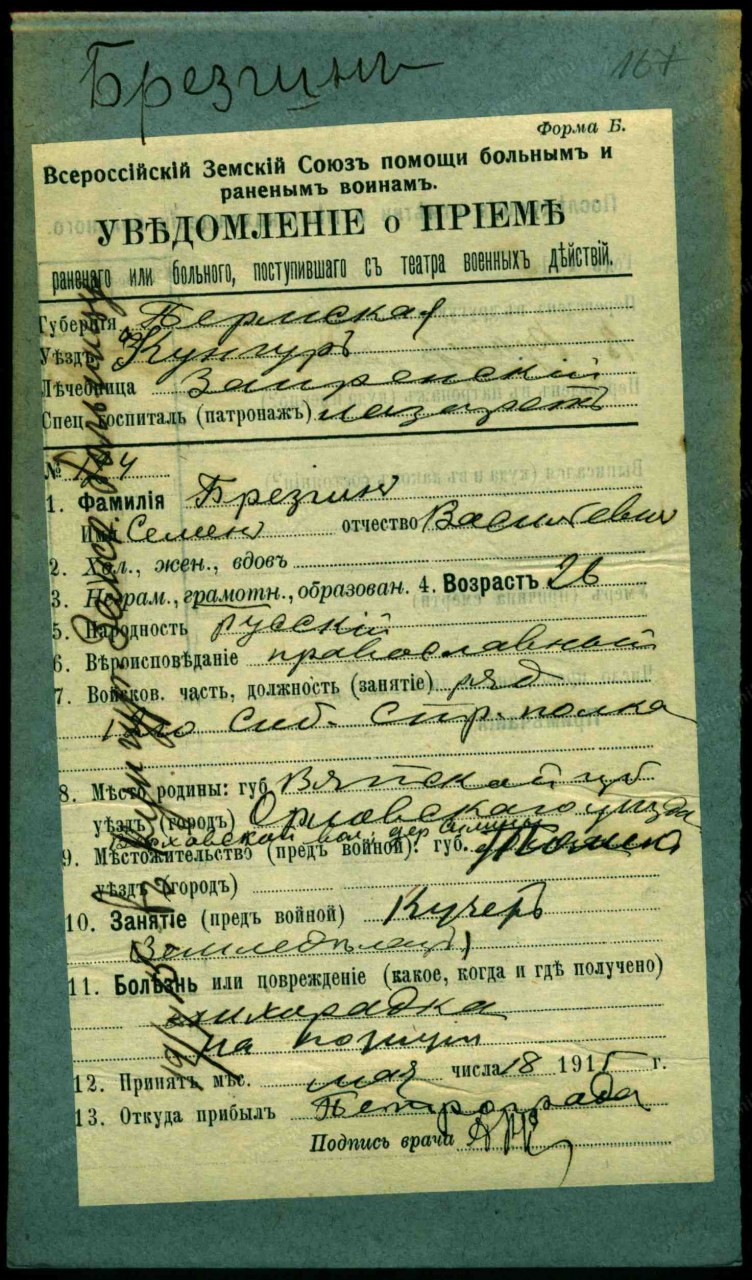 Брезгинъ
167
Форма Б.
Всероссійскій Земскій Союзъ помощи больнымъ и
раненымъ воинамъ.
УВѢДОМЛЕНІЕ о ПРІЕМѢ
раненаго или больного, поступившаго съ театра военныхъ дѣйствій.
Губернія Пермская
Уѣздъ Кунгуръ
Лѣчебница Зыренскій
Спец. госпиталь (патронажъ) лазаретъ
№
1. Фамилія Брезгин
Имя Семен отчество Васильевич
2. Хол., жен., вдовъ
3. Неграм., грамотн., образован. 4. Возрастъ 26
5. Народность русскій
6. Вѣроисповѣданіе православной
7. Войсков. часть, должность (занятіе) ряд
Сиб. Стр. полка
8. Мѣсто родины: губ. Вятской губ
уѣздъ (городъ) Орловскаго уѣзда
вол. дер.
9. Мѣстожительство (предъ войной): губ. Томск
уѣздъ (городъ)
10. Занятіе (предъ войной) Кучеръ
Земледѣлецъ)
11. Болѣзнь или поврежденіе (какое, когда и гдѣ получено)
лихорадка
на позиціи
12. Принятъ мѣс. мая числа 18 1915 г.
13. Откуда прибылъ Петрограда
Подпись врача